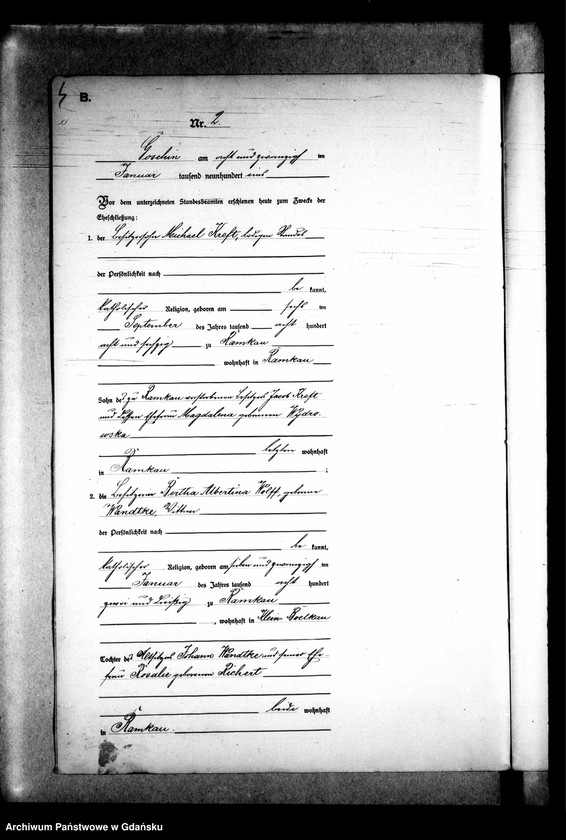 B.
Nr. 2.
Goschin am acht und zwanzigsten
Januar tausend neunhundert eins
Vor dem unterzeichneten Standesbeamten erschienen heute zum Zwecke der
Eheschließung:
1. der Besitzersohn Michael Kreft, ledigen Standes
der Persönlichkeit nach
be kannt,
katholischer Religion, geboren am sechsten
September des Jahres tausend acht hundert
acht und sechzig zu Ramkau
wohnhaft in Ramkau
Sohn des zu Ramkau verstorbenen Besitzers Jacob Kreft
und dessen Ehefrau Magdalena geborenen Wydro-
wska
letzten wohnhaft
in Ramkau ;
2. die Besitzerin Bertha Albertina Wolff, geborene
Wandtke, Wittwe
der Persönlichkeit nach
be kannt,
katholischer Religion, geboren am sieben und zwanzigsten
Januar des Jahres tausend acht hundert
zwei und zu Ramkau
, wohnhaft in Klein Boelkau
Tochter des Altsitzers Johann Wandtke und seiner Ehe-
frau Rosalie geborenen Richert
beide wohnhaft
in Ramkau.
Archiwum Państwowe w Gdańsku